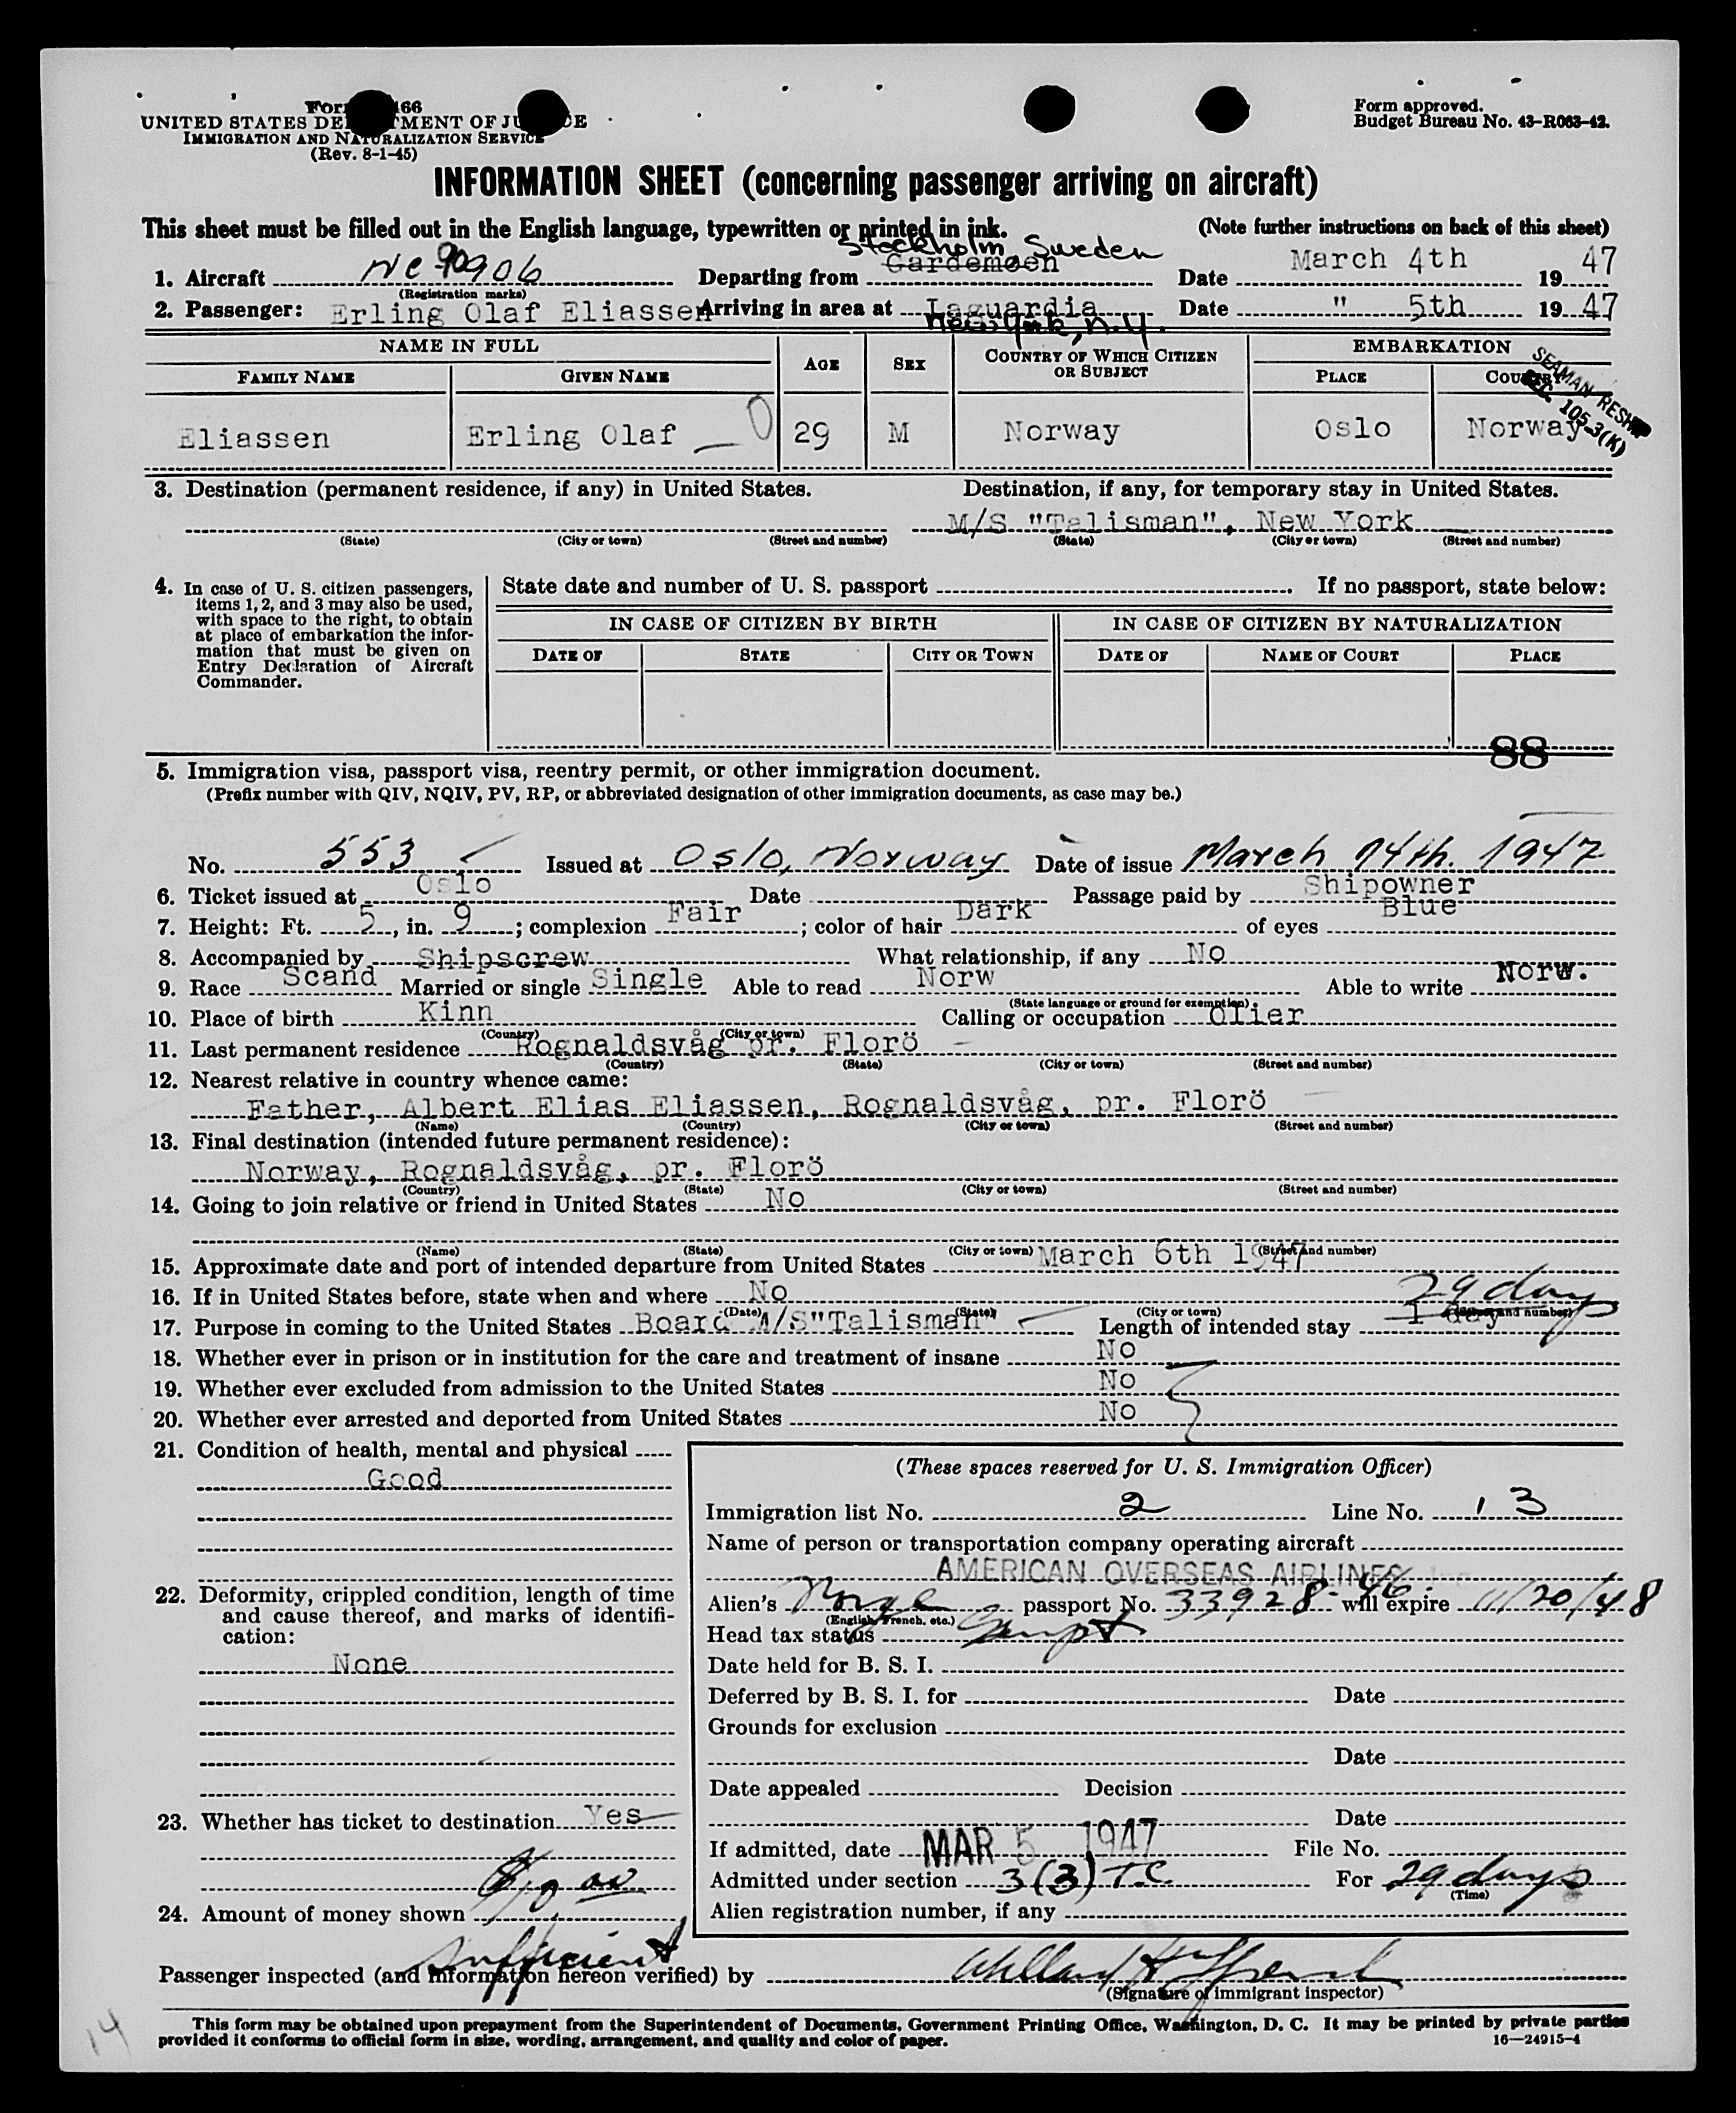 Form 466
UNITED STATES DEPARTMENT OF JUSTICE
IMMIGRATION AND NATURALIZATION SERVICE
(Rev. 8-1-45)
Form approved.
Budget Bureau No. 43-R063-42.
INFORMATION SHEET (concerning passenger arriving on aircraft)
This sheet must be filled out in the English language, typewritten or printed in ink. (Note further instructions on back of this sheet)
Stockholm, Sweden
1. Aircraft NC 90906 Departing from Gardemoen Date March 4th 1947
(Registration marks)
2. Passenger: Erling Olaf Eliassen Arriving in area at Laguardia Date " 5th 1947
New York, N.Y.
NAME IN FULL AGE SEX COUNTRY OF WHICH CITIZEN OR SUBJECT EMBARKATION
FAMILY NAME GIVEN NAME PLACE COUNTRY
SEAMAN RESHIP
SEC. 105.3(K)
Eliassen Erling Olaf 0 29 M Norway Oslo Norway
3. Destination (permanent residence, if any) in United States. Destination, if any, for temporary stay in United States.
M/S "Talisman", New York
(State) (City or town) (Street and number) (State) (City or town) (Street and number)
4. In case of U. S. citizen passengers, items 1, 2, and 3 may also be used, with space to the right, to obtain at place of embarkation the information that must be given on Entry Declaration of Aircraft Commander.
State date and number of U. S. passport . If no passport, state below:
IN CASE OF CITIZEN BY BIRTH IN CASE OF CITIZEN BY NATURALIZATION
DATE OF STATE CITY OR TOWN DATE OF NAME OF COURT PLACE
88
5. Immigration visa, passport visa, reentry permit, or other immigration document.
(Prefix number with QIV, NQIV, PV, RP, or abbreviated designation of other immigration documents, as case may be.)
No. 553 Issued at Oslo, Norway Date of issue March 14th. 1947
6. Ticket issued at Oslo Date Passage paid by Shipowner
7. Height: Ft. 5, in. 9; complexion Fair; color of hair Dark of eyes Blue
8. Accompanied by Shipscrew What relationship, if any No
9. Race Scand Married or single Single Able to read Norw Able to write Norw.
(State language or ground for exemption)
10. Place of birth Kinn Calling or occupation Olier
(Country) (City or town)
11. Last permanent residence Rognaldsvåg pr. Florö
(Country) (State) (City or town) (Street and number)
12. Nearest relative in country whence came:
Father, Albert Elias Eliassen, Rognaldsvåg, pr. Florö
(Name) (Country) (City or town) (Street and number)
13. Final destination (intended future permanent residence):
Norway, Rognaldsvåg, pr. Florö
(Country) (State) (City or town) (Street and number)
14. Going to join relative or friend in United States No
(Name) (State) (City or town) (Street and number)
15. Approximate date and port of intended departure from United States March 6th 1947
16. If in United States before, state when and where No
(Date) (State) (City or town) (Street and number)
29 days
17. Purpose in coming to the United States Board M/S"Talisman" Length of intended stay 1 day
18. Whether ever in prison or in institution for the care and treatment of insane No
19. Whether ever excluded from admission to the United States No
20. Whether ever arrested and deported from United States No
21. Condition of health, mental and physical
Good
22. Deformity, crippled condition, length of time and cause thereof, and marks of identification:
None
23. Whether has ticket to destination Yes
$10.00
24. Amount of money shown
Sufficient
(These spaces reserved for U. S. Immigration Officer)
Immigration list No. 2 Line No. 13
Name of person or transportation company operating aircraft
AMERICAN OVERSEAS AIRLINES Inc
Alien's Norge passport No. 33928-46 will expire 11/20/48
(English, French, etc.)
Head tax status Exempt
Date held for B. S. I.
Deferred by B. S. I. for Date
Grounds for exclusion
Date
Date appealed Decision
Date
If admitted, date MAR 5 1947 File No.
Admitted under section 3(3) T.C. For 29 days
(Time)
Alien registration number, if any
Passenger inspected (and information hereon verified) by
(Signature of immigrant inspector)
14
This form may be obtained upon prepayment from the Superintendent of Documents, Government Printing Office, Washington, D. C. It may be printed by private parties
provided it conforms to official form in size, wording, arrangement, and quality and color of paper. 16—24915-4